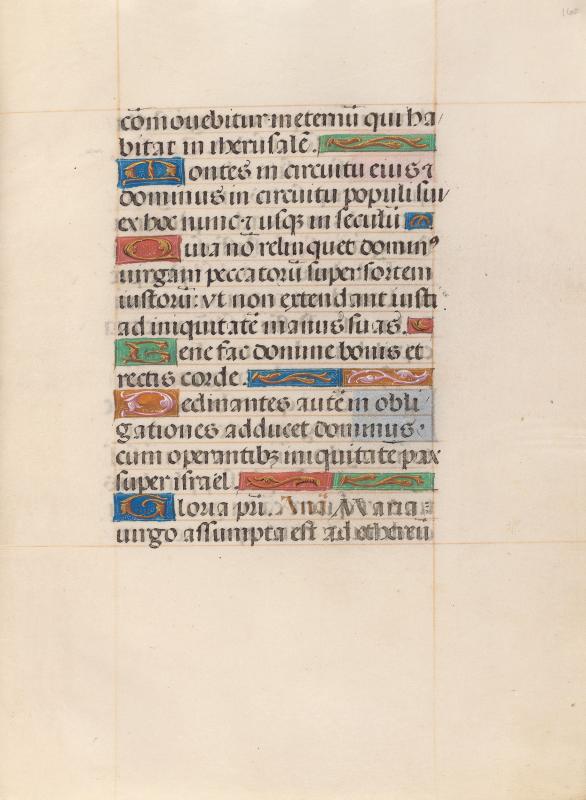 160
cōmouebitur in eternū qui ha/
bitat in iherusalē.
Montes in circuitu eius ⁊
dominus in circuitu populi sui/
ex hoc nunc ⁊ usqꝫ in seculū
Quia nō relinquet domin⁹
uirgam peccatorū super sortem
iustorū: vt non extendant iusti
ad iniquitatē manus suas.
Benefac domine bonis et
rectis corde.
Declinantes autē in obli
gationes adducet dominus.
cum operantibꝫ iniquitatē pax
super israel.
Gloria pri. Anā Maria
uirgo assumpta est ad ethereū